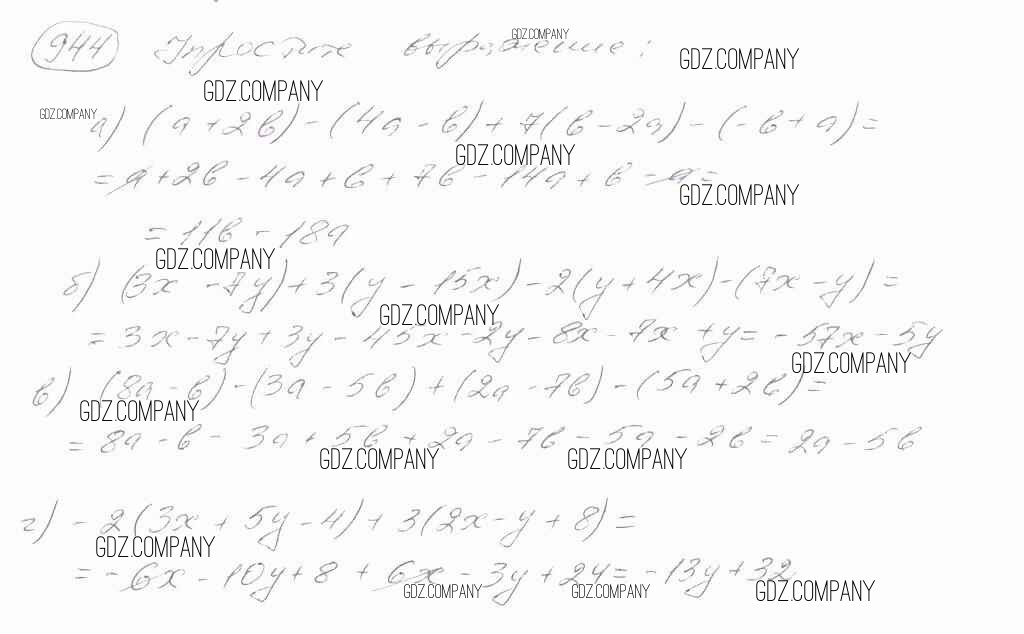 944 Упростите выражение:
GDZ.COMPANY
GDZ.COMPANY
GDZ.COMPANY
GDZ.COMPANY
а) (a+2b)-(4a-b)+7(b-2a)-(-b+a)=
GDZ.COMPANY
=a+2b-4a+b+7b-14a+b-a=
GDZ.COMPANY
=11b-18a
GDZ.COMPANY
б) (3x-7y)+3(y-15x)-2(y+4x)-(7x-y)=
GDZ.COMPANY
=3x-7y+3y-45x-2y-8x-7x+y=-57x-5y
GDZ.COMPANY
в) (8a-b)-(3a-5b)+(2a-7b)-(5a+2b)=
GDZ.COMPANY
=8a-b-3a+5b+2a-7b-5a-2b=2a-5b
GDZ.COMPANY GDZ.COMPANY
г) -2(3x+5y-4)+3(2x-y+8)=
GDZ.COMPANY
=-6x-10y+8+6x-3y+24=-13y+32
GDZ.COMPANY GDZ.COMPANY GDZ.COMPANY